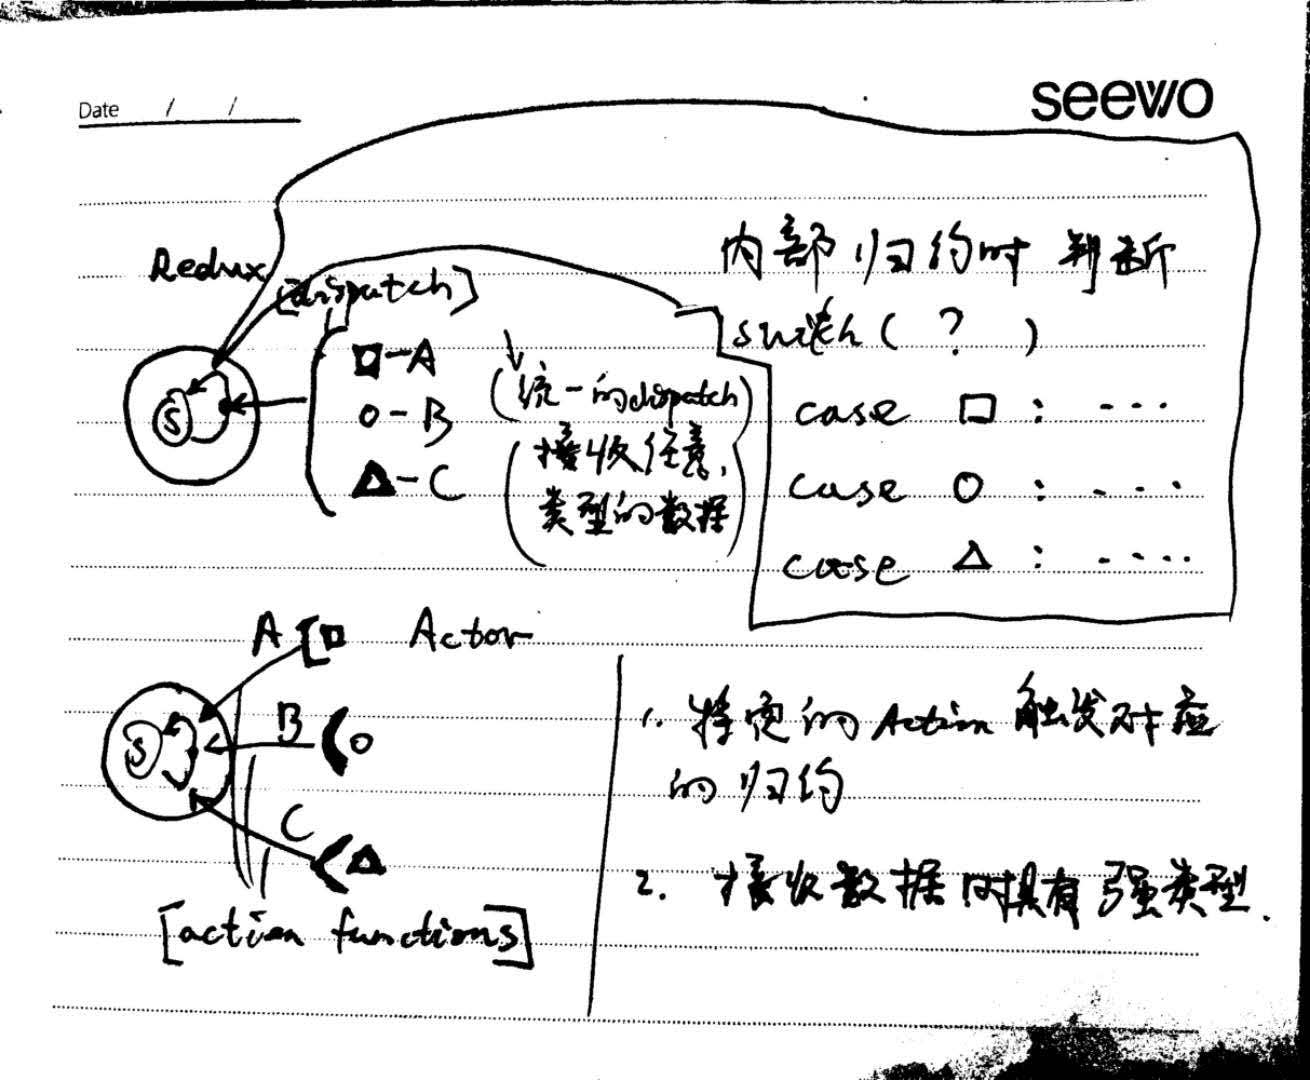 Date / /
seewo
Redux
[dispatch]
S
□-A
○-B
△-C
统一的dispatch
接收任意
类型的数据
内部归约时判断
switch ( ? )
case □ : ...
case ○ : ...
case △ : ....
A [□ Actor
S
B (○
C (△
[action functions]
1. 特定的 Action 触发对应
的归约
2. 接收数据时具有强类型.